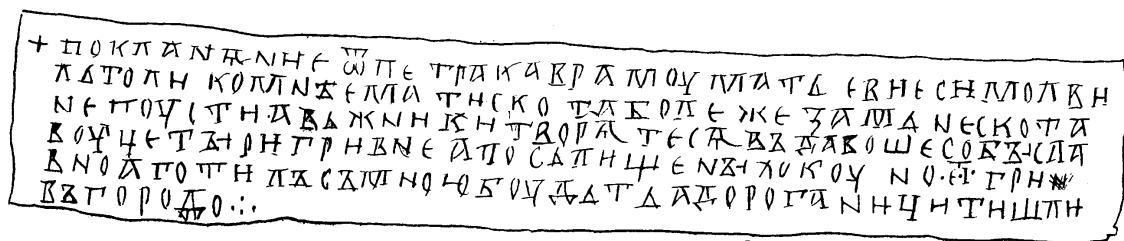 + ПОКЛАНѦНИЕ Ѿ ПЕТРА КАВРАМОУ МАТЬ ЕВИЕСИ МОЛВИ
ЛЬТОЛИ КОЛЛNѢ ЕМЛАТИ СКОТА БОЛЕ ЖЕ ЗАМЬ NЕСКОТА
NЕ ПОУСТИ АВЪЖNИКИ ТВОРѦТЕСѦ ВЪДАВОШЕ СОБЪІСЛА
ВОУ ЧЕТЪІРИ ГРИВNЕ А ПОСЪЛИ ЩЕ NЪІ ЛОКОУ NО·ЕІ·ГРИ
ВNО А ГОТИЛЪ СЪМNОЮ БОУДЬТЬ А ДОРОГАNИЧИТИШЛИ
ВЪГОРОДО⁘